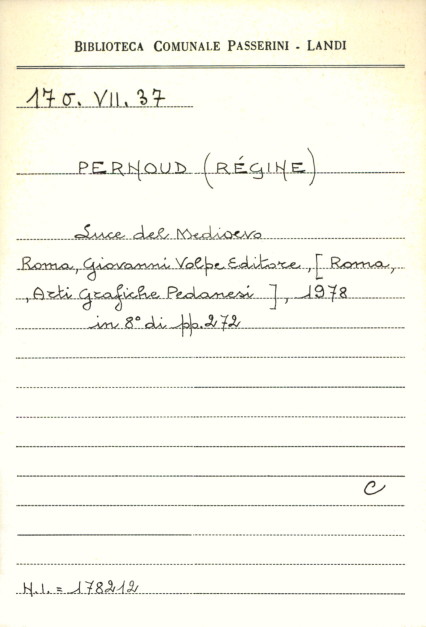 BIBLIOTECA COMUNALE PASSERINI - LANDI
17σ. VII. 37
PERNOUD (RÉGINE)
Luce del Medioevo
Roma, Giovanni Volpe Editore, [ Roma,
, Arti Grafiche Pedanesi ], 1978
in 8° di pp. 272
C
N.I. = 178212